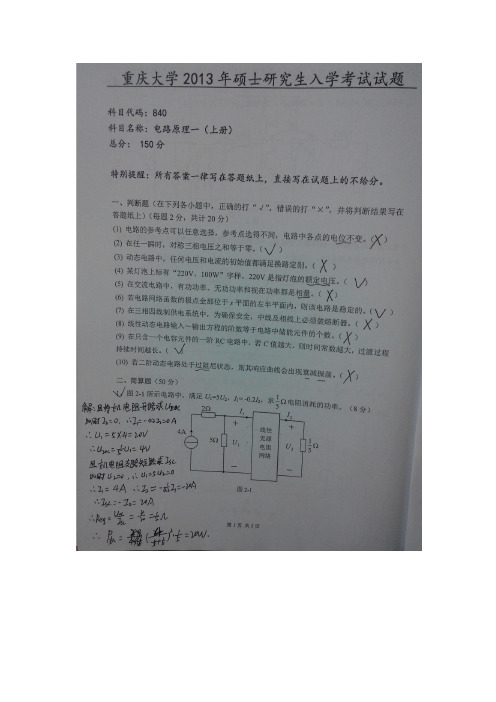 重庆大学 2013 年硕士研究生入学考试试题
科目代码：840
科目名称：电路原理一（上册）
总分： 150 分
特别提醒：所有答案一律写在答题纸上，直接写在试题上的不给分。
一、判断题（在下列各小题中，正确的打“√”，错误的打“×”，并将判断结果写在
答题纸上）（每题 2 分，共计 20 分）
(1) 电路的参考点可以任意选择，参考点选得不同，电路中各点的电位不变。（╳）
(2) 在任一瞬时，对称三相电压之和等于零。（√）
(3) 动态电路中，任何电压和电流的初始值都满足换路定则。（╳）
(4) 某灯泡上标有“220V、100W”字样，220V 是指灯泡的额定电压。（√）
(5) 在交流电路中，有功功率、无功功率和视在功率都是相量。（╳）
(6) 若电路网络函数的极点全部位于 s 平面的左半平面内，则该电路是稳定的。（√）
(7) 在三相四线制供电系统中，为确保安全，中线及相线上必须装熔断器。（╳）
(8) 线性动态电路输入一输出方程的阶数等于电路中储能元件的个数。（╳）
(9) 在只含一个电容元件的一阶 RC 电路中，若 C 值越大，则时间常数越大，过渡过程
持续时间越长。（√）
(10) 若二阶动态电路处于过阻尼状态，则其响应曲线会出现衰减振荡。（╳）
二、简算题（50 分）
√图 2-1 所示电路中，满足 U₁=5U₂，I₁= -0.2I₂，求 1/5 Ω 电阻消耗的功率。（8 分）
2Ω I₁ I₂
4A 5Ω + U₁ − 线性无源电阻网络 + U₂ − 1/5 Ω
图 2-1
∴U₁=5×4=20V
∴U₂ₒc=1/5U₁=4V
∴I₁=4A
第 1 页 共 5 页